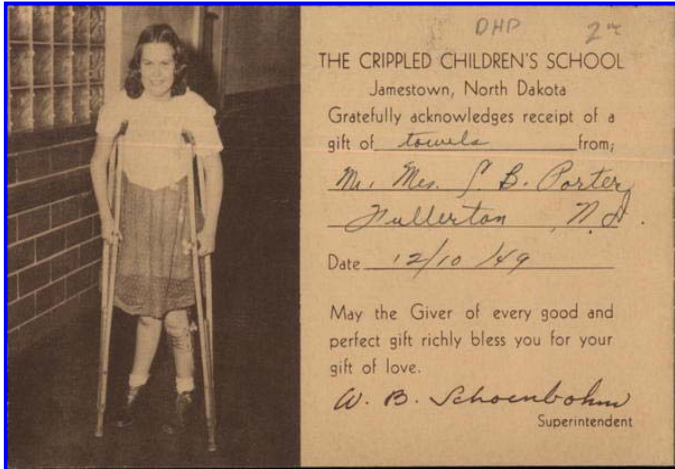 DHP 2
THE CRIPPLED CHILDREN'S SCHOOL
Jamestown, North Dakota
Gratefully acknowledges receipt of a
gift of towels from;
Mr. Mrs. B. Porter
Fullerton, N.D.
Date 12/10/49
May the Giver of every good and
perfect gift richly bless you for your
gift of love.
W. B. Schoenbohm
Superintendent